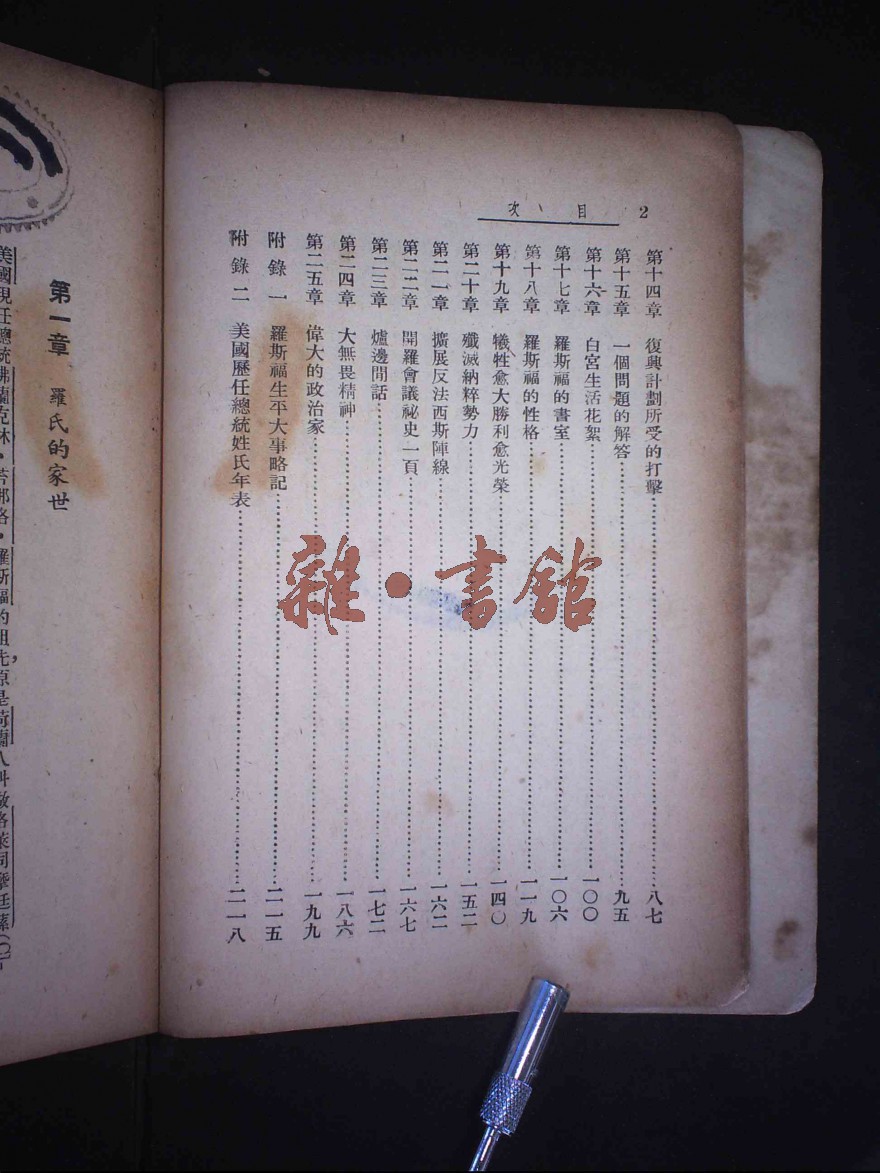 2 目次
第十四章 復興計劃所受的打擊 八七
第十五章 一個問題的解答 九五
第十六章 白宮生活花絮 一〇〇
第十七章 羅斯福的書室 一〇六
第十八章 羅斯福的性格 一一九
第十九章 犧牲愈大勝利愈光榮 一四〇
第二十章 殲滅納粹勢力 一五二
第二一章 擴展反法西斯陣線 一六二
第二二章 開羅會議祕史一頁 一六七
第二三章 爐邊閒話 一七二
第二四章 大無畏精神 一八六
第二五章 偉大的政治家 一九九
附錄一 羅斯福生平大事略記 二一五
附錄二 美國歷任總統姓氏年表 二一八
第一章 羅氏的家世
美國現任總統佛蘭克林·羅斯福的祖先原是荷蘭人
雜·書館